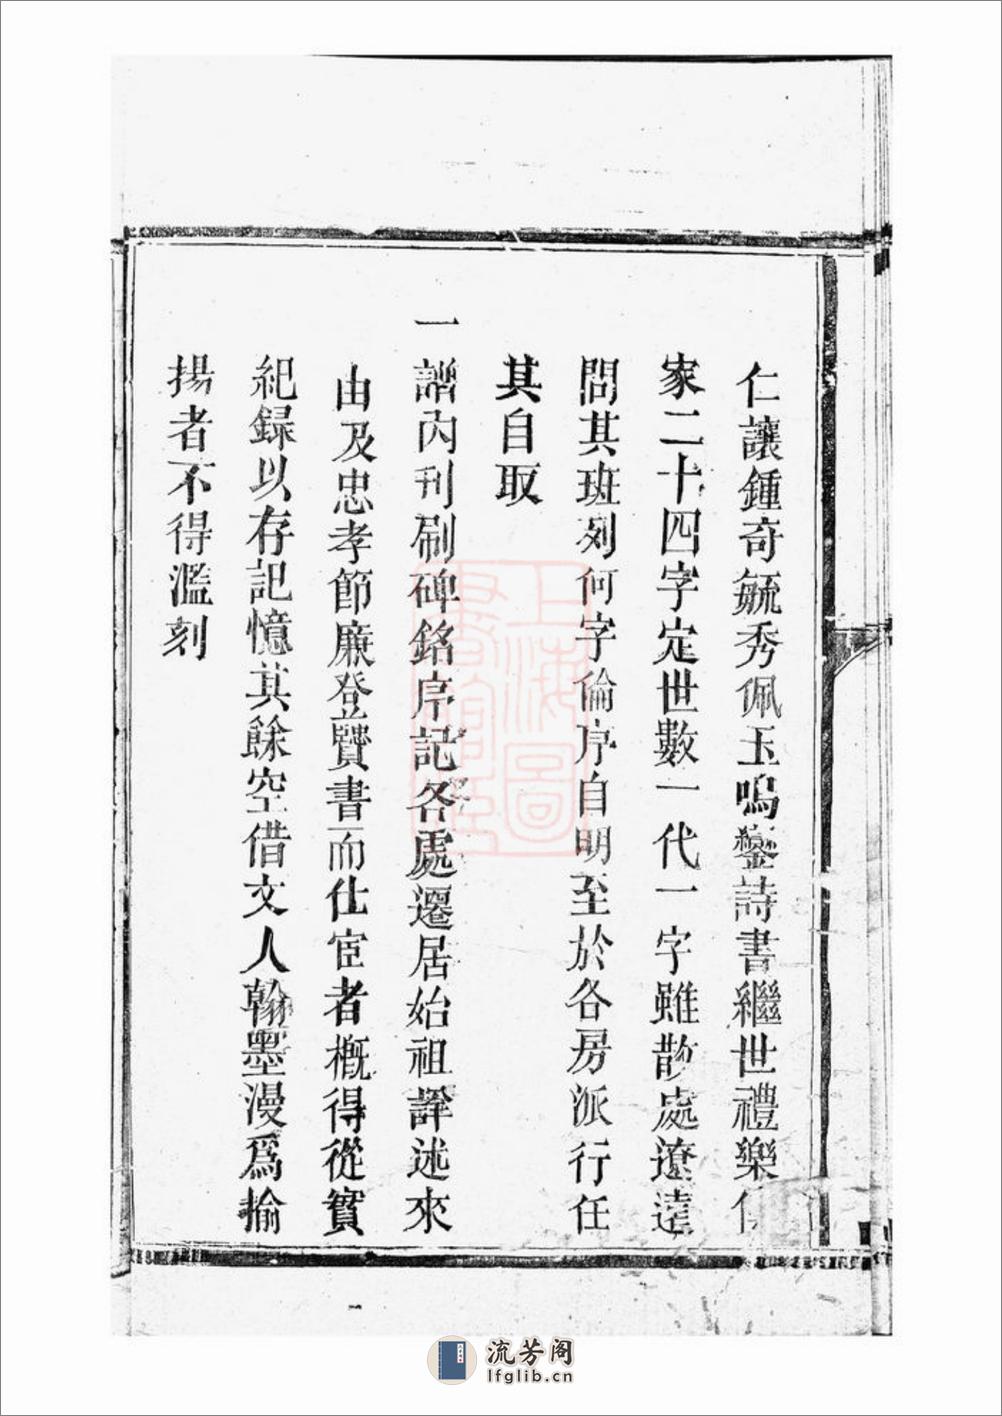 仁讓鍾奇毓秀佩玉鳴鑾詩書繼世禮樂傳
家二十四字定世數一代一字雖散處遼遠
問其班列何字倫序自明至於各房派行任
其自取
一譜內刊刷碑銘序記各處遷居始祖詳述來
由及忠孝節廉登賢書而仕宦者概得從實
紀録以存記憶其餘空借文人翰墨漫爲揄
揚者不得濫刻
上海圖書館藏
流芳阁
lfglib.cn